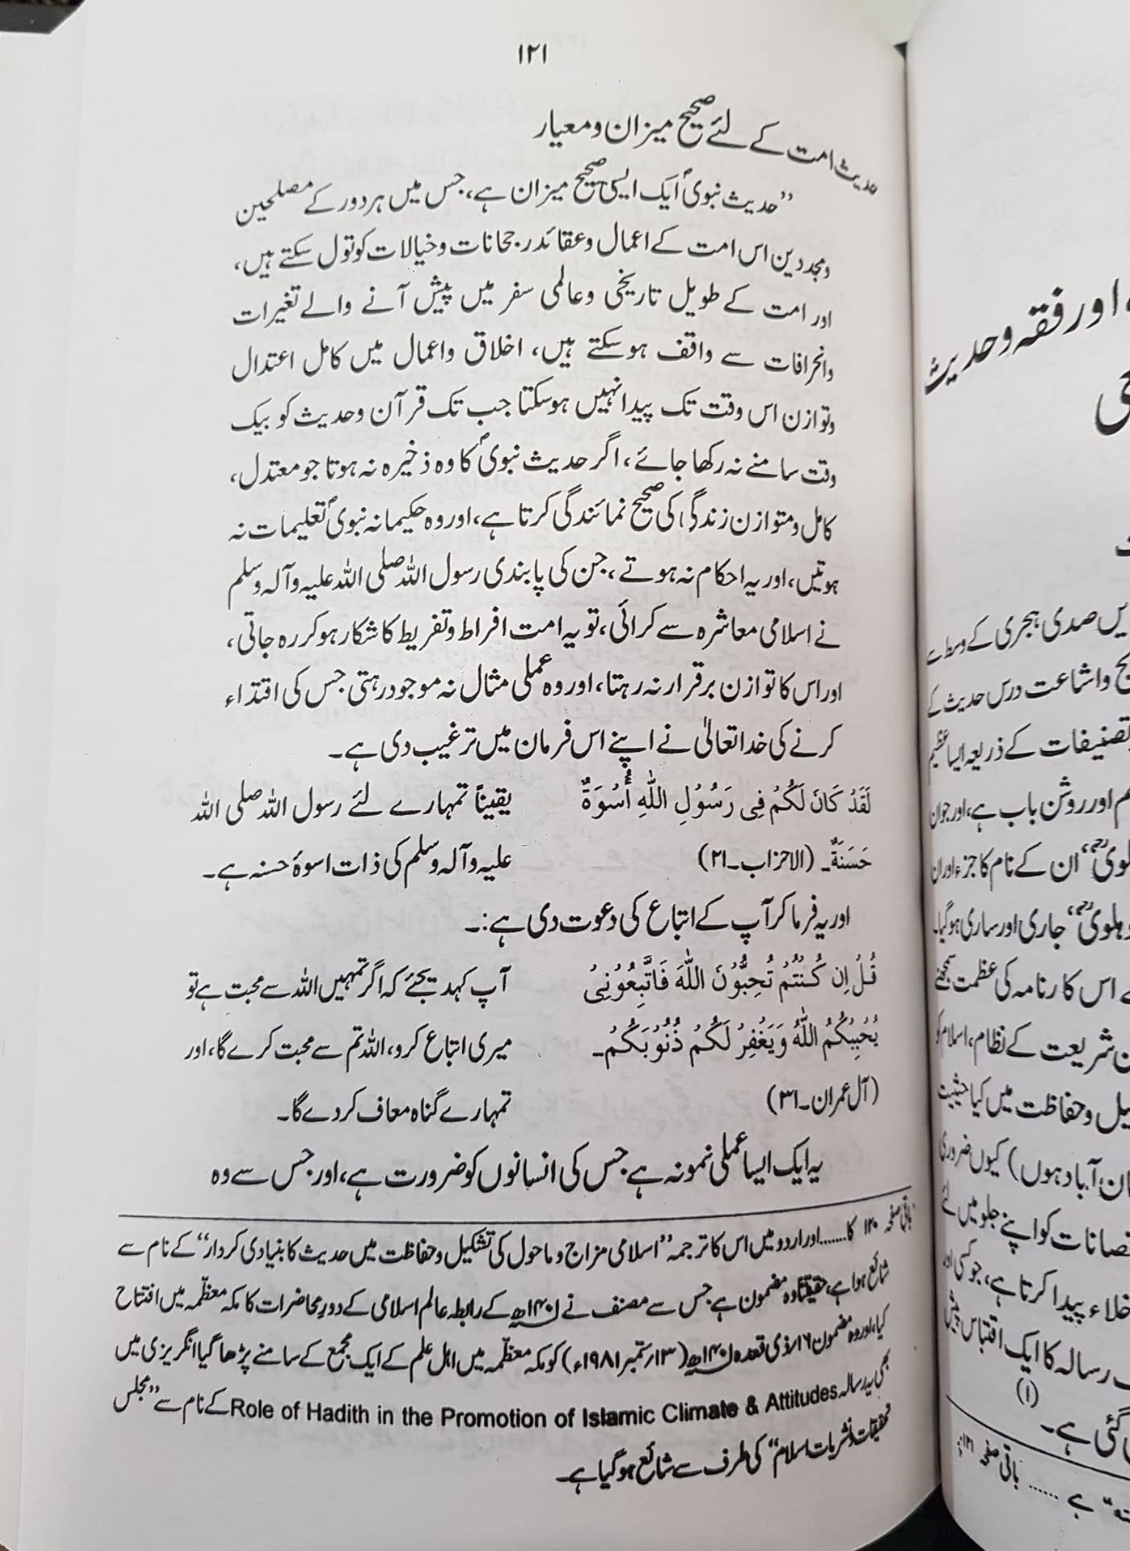 ۱۲۱
حدیث امت کے لئے صحیح میزان و معیار
”حدیث نبویؐ ایک ایسی صحیح میزان ہے، جس میں ہر دور کے مصلحین
ومجددین اس امت کے اعمال و عقائد رجحانات و خیالات کو تول سکتے ہیں،
اور امت کے طویل تاریخی و عالمی سفر میں پیش آنے والے تغیرات
وانحرافات سے واقف ہو سکتے ہیں، اخلاق و اعمال میں کامل اعتدال
وتوازن اس وقت تک پیدا نہیں ہو سکتا جب تک قرآن و حدیث کو بیک
وقت سامنے نہ رکھا جائے، اگر حدیث نبویؐ کا وہ ذخیرہ نہ ہوتا جو معتدل،
کامل و متوازن زندگی کی صحیح نمائندگی کرتا ہے، اور وہ حکیمانہ نبویؐ تعلیمات نہ
ہوتیں، اور یہ احکام نہ ہوتے، جن کی پابندی رسول اللہ صلی اللہ علیہ وآلہ وسلم
نے اسلامی معاشرہ سے کرائی، تو یہ امت افراط و تفریط کا شکار ہو کر رہ جاتی،
اور اس کا توازن برقرار نہ رہتا، اور وہ عملی مثال نہ موجود رہتی جس کی اقتداء
کرنے کی خدا تعالیٰ نے اپنے اس فرمان میں ترغیب دی ہے۔
لَقَدْ كَانَ لَكُمْ فِي رَسُوْلِ اللهِ أُسْوَةٌ
حَسَنَةٌ۔ (الاحزاب۔۲۱)
یقیناً تمہارے لئے رسول اللہ صلی اللہ
علیہ وآلہ وسلم کی ذات اسوۂ حسنہ ہے۔
اور یہ فرما کر آپ کے اتباع کی دعوت دی ہے:۔
قُلْ اِن كُنْتُمْ تُحِبُّوْنَ اللهَ فَاتَّبِعُوْنِیْ
يُحْبِبْكُمُ اللهُ وَيَغْفِرْ لَكُمْ ذُنُوْبَكُمْ۔
(آل عمران۔۳۱)
آپ کہہ دیجئے کہ اگر تمہیں اللہ سے محبت ہے تو
میری اتباع کرو، اللہ تم سے محبت کرے گا، اور
تمہارے گناہ معاف کر دے گا۔
یہ ایک ایسا عملی نمونہ ہے جس کی انسانوں کو ضرورت ہے، اور جس سے وہ
باقی صفحہ ۱۲۰ کا......اور اردو میں اس کا ترجمہ ”اسلامی مزاج و ماحول کی تشکیل و حفاظت میں حدیث کا بنیادی کردار“ کے نام سے
شائع ہوا ہے، حقیقتاً وہ مضمون ہے جس سے مصنف نے ۱۴۰۱ھ کے رابطہ عالم اسلامی کے دورِ محاضرات کا مکہ معظمہ میں افتتاح
کیا، اور وہ مضمون ۱۶/ذی قعدہ ۱۴۰۱ھ (۱۳/ستمبر ۱۹۸۱ء) کو مکہ معظمہ میں اہل علم کے ایک مجمع کے سامنے پڑھا گیا انگریزی میں
بھی یہ رسالہ Role of Hadith in the Promotion of Islamic Climate & Attitudes کے نام سے ”مجلس
تحقیقات و نشریات اسلام“ کی طرف سے شائع ہو گیا ہے۔
اور فقہ و حدیث
صدی ہجری کے وسط سے
واشاعت درس حدیث کے
تصنیفات کے ذریعہ ایسا عظیم
اور روشن باب ہے، اور جوان
ان کے نام کا جزء اور ان
جاری اور ساری ہو گیا۔
اس کارنامہ کی عظمت سمجھنے
شریعت کے نظام، اسلام کو
و حفاظت میں کیا حیثیت
آباد ہوں) کیوں ضروری
کو اپنے جلو میں لئے
خلاء پیدا کرتا ہے، جو کسی اور
رسالہ کا ایک اقتباس پیش
گئی ہے۔ (۱)
ہے ...... باقی صفحہ ۱۲۱ پر